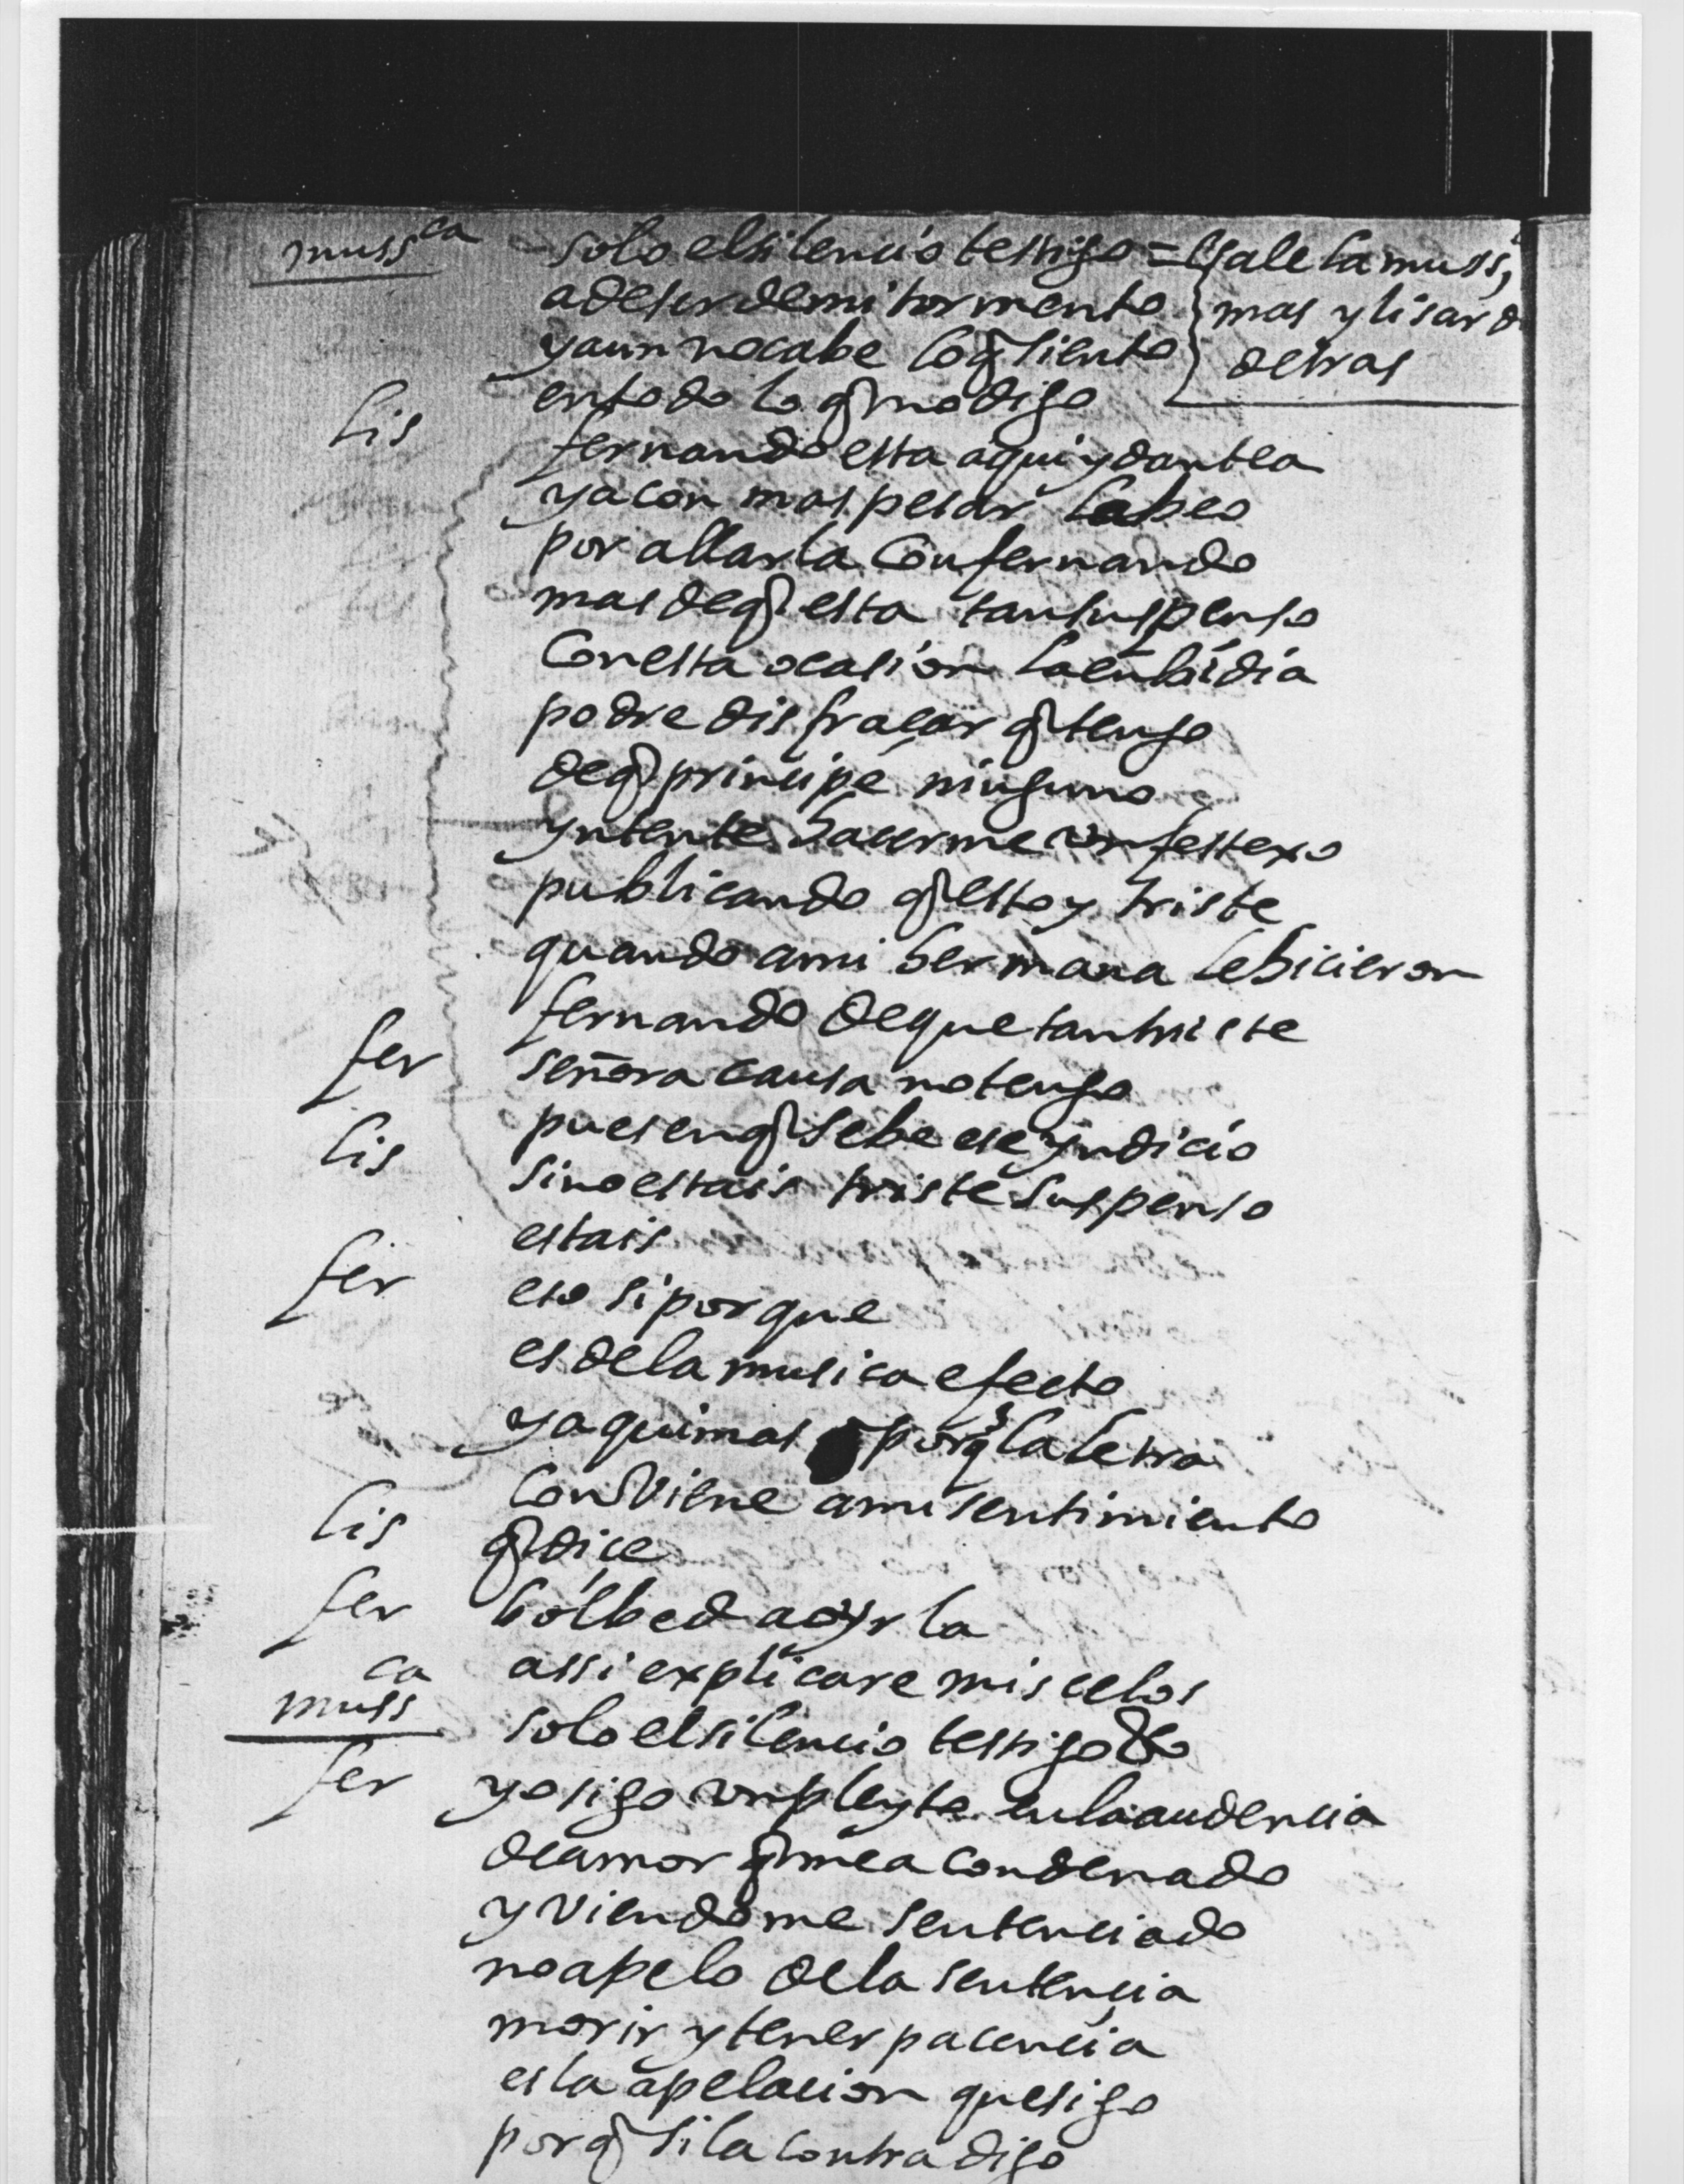 muss ca solo el silencio testigo = Sale la mussi,
a de ser de mi tormento mas y lisard
y aun no cabe lo q siento detras
en todo lo q no digo
lis fernando esta aqui y dantea
ya con mas pesar la beo
por allarla con fernando
mas de q esta tan suspenso
con esta ocasion la enbidia
podre disfraçar q tengo
de q principe ninguno
yntente hacerme un festexo
publicando q estoy triste
quando a mi hermana le hicieron
fernando de que tan triste
fer señora causa no tengo
lis pues en q se be ese yndicio
si no estais triste suspenso
estais
fer eso si porque
es de la musica efecto
y aqui mas porq la letra
conviene a mi sentimiento
lis q dice
fer bolbed a oyrla
assi explicare mis celos
muss ca solo el silencio testigo &
fer yo sigo un pleyto en la audencia
de amor q me a condenado
y viendome sentenciado
no apelo de la sentencia
morir y tener pacencia
es la apelacion que sigo
porq si la contradigo